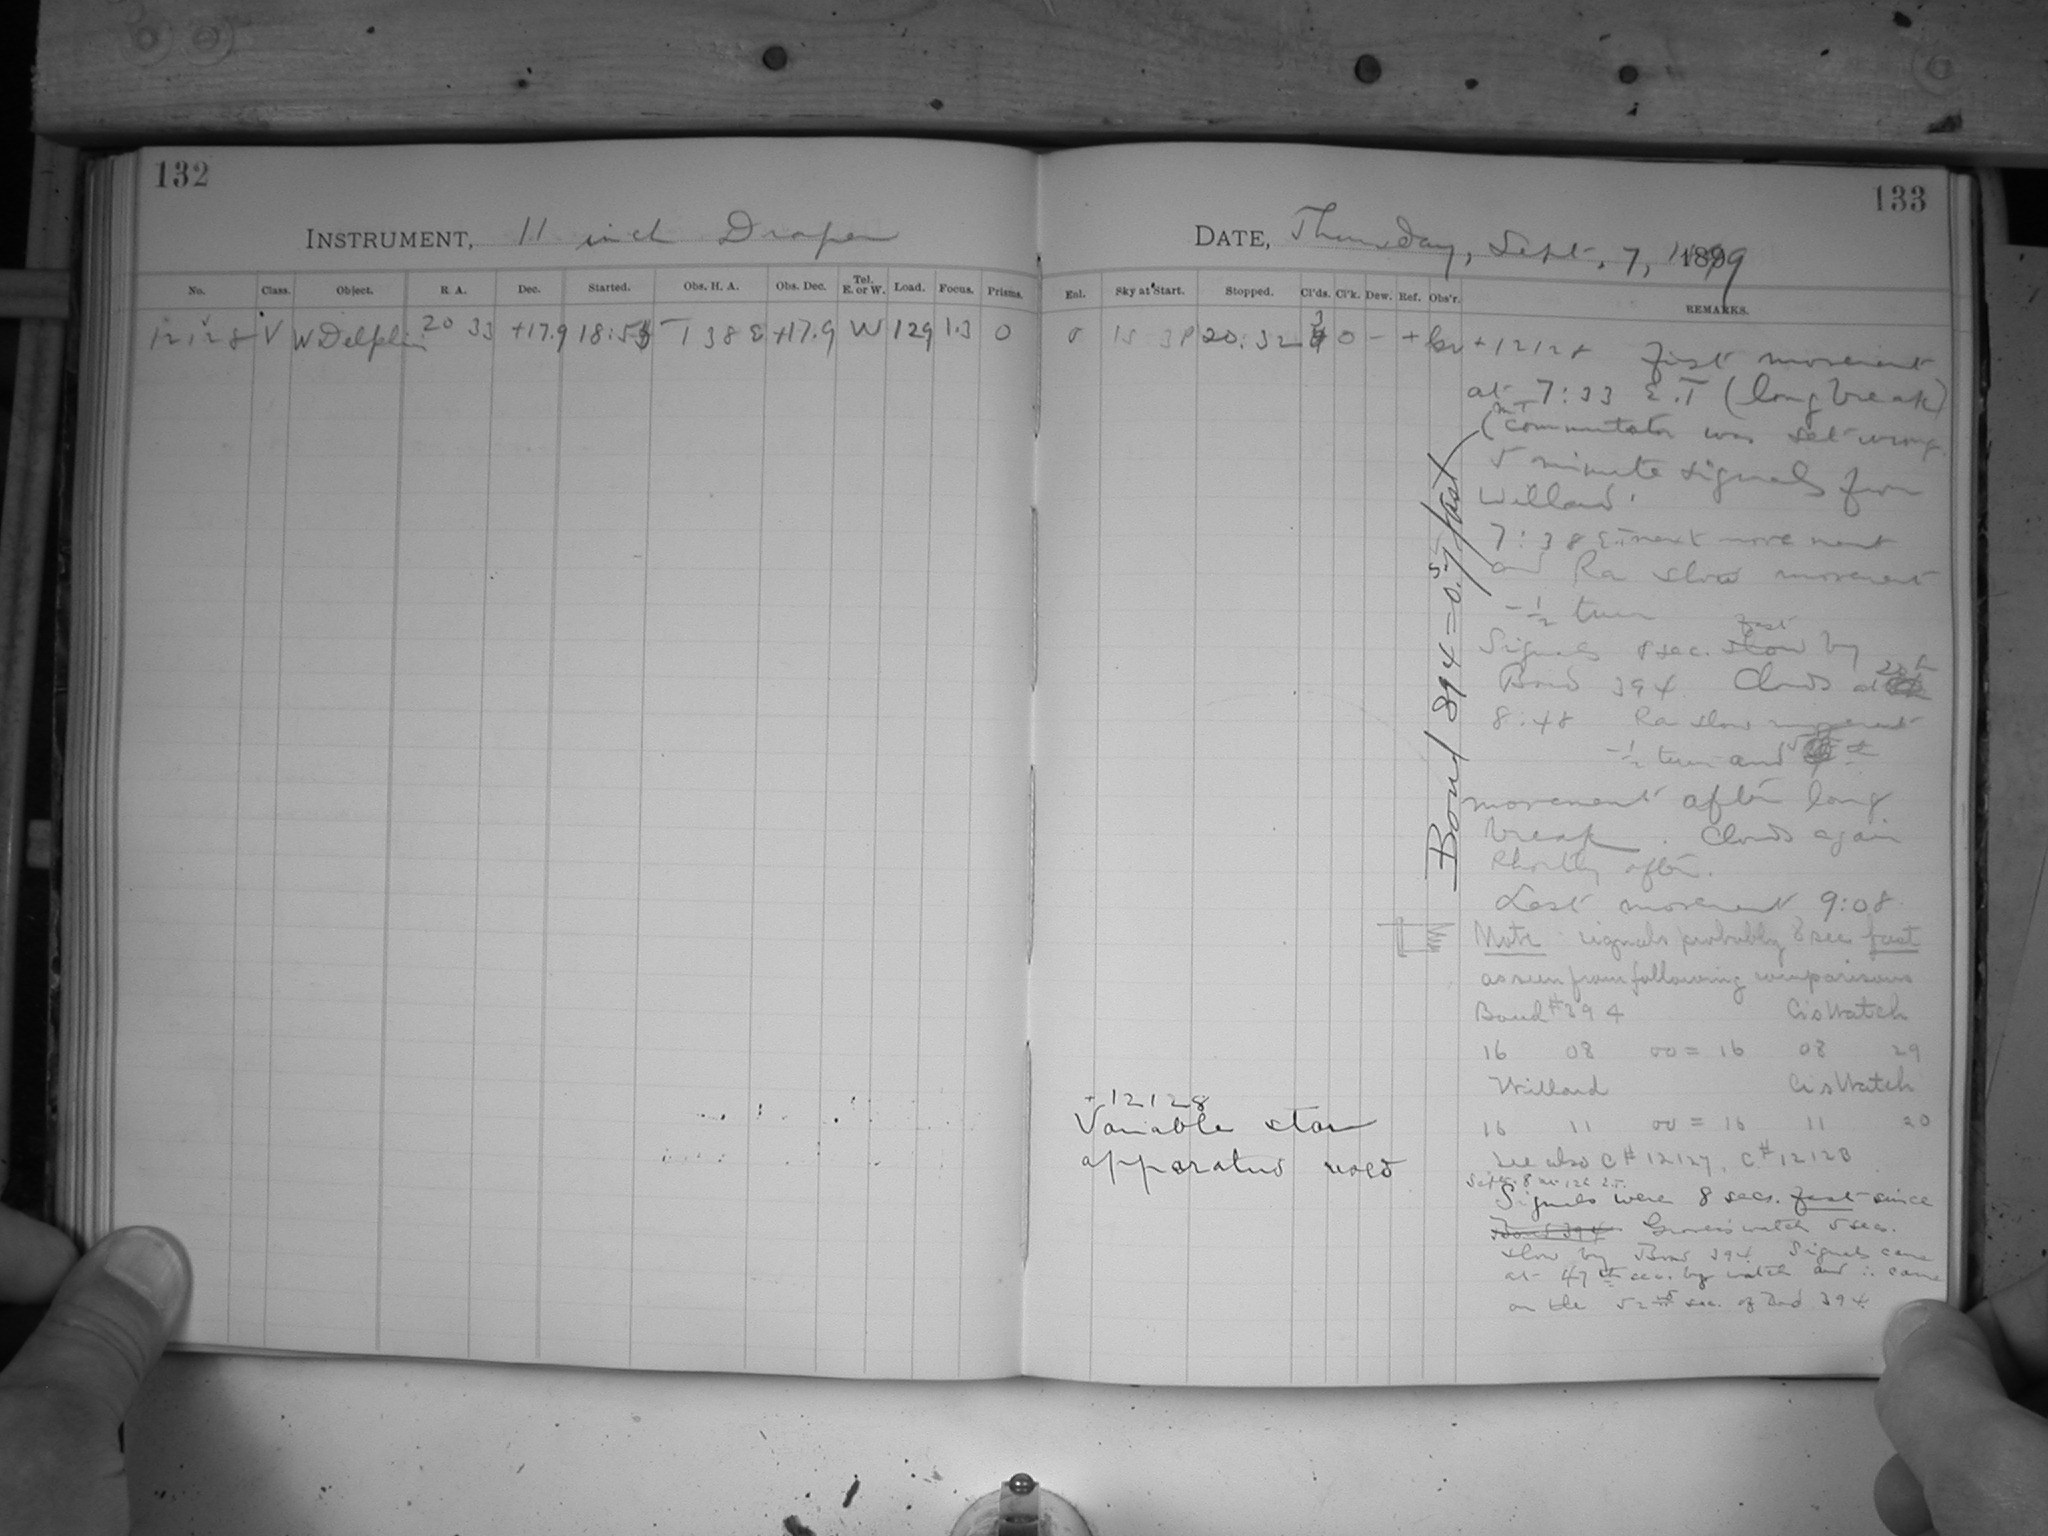 132
INSTRUMENT, 11 inch Draper
No. Class. Object. R. A. Dec. Started. Obs. H. A. Obs. Dec. Tel. E. or W. Load. Focus. Prisms.
12128 V W Delphin 20 33 +17.9 18:53 T 38 E +17.9 W 129 1.3 0
133
DATE, Thursday, Sept. 7, 1899
Exl. Sky at Start. Stopped. Cl'ds. Cl'k. Dew. Ref. Obs'r. REMARKS.
20:32 3 0 - +
+12128 First movement
at 7:33 E.T (long break)
(commutator was set wrong
5 minute signals from
Willard.
7:38 E.T next movement
and Ra slow movement
-½ turn
Signals 8 sec. slow fast by
Bond 394 Clouds at
8:48 Ra slow movement
-½ turn and
movement after long
break. Clouds again
shortly after.
Last movement 9:08
Note signals probably 8 sec fast
as seen from following comparisons
Bond #394 G's Watch
16 08 00 = 16 08 29
Willard G's Watch
16 11 00 = 16 11 20
See also C# 12127, C# 12128
Signals were 8 secs. fast since
Bond 394 Grover's watch 5 sec.
slow by Bond 394 Signals came
at 47th sec. by watch and ∴ came
on the 52nd sec. of Bond 394.
Bond 394 = 0.7s fast
+12128
Variable star
apparatus used